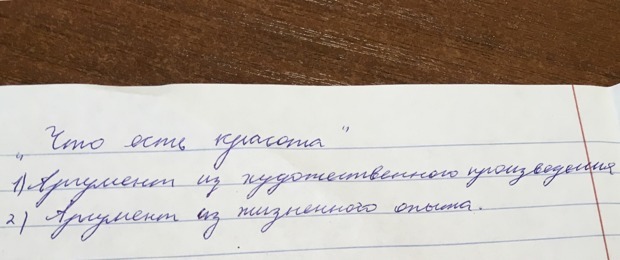 „Что есть красота"
1) Аргумент из художественного произведения
2) Аргумент из жизненного опыта.